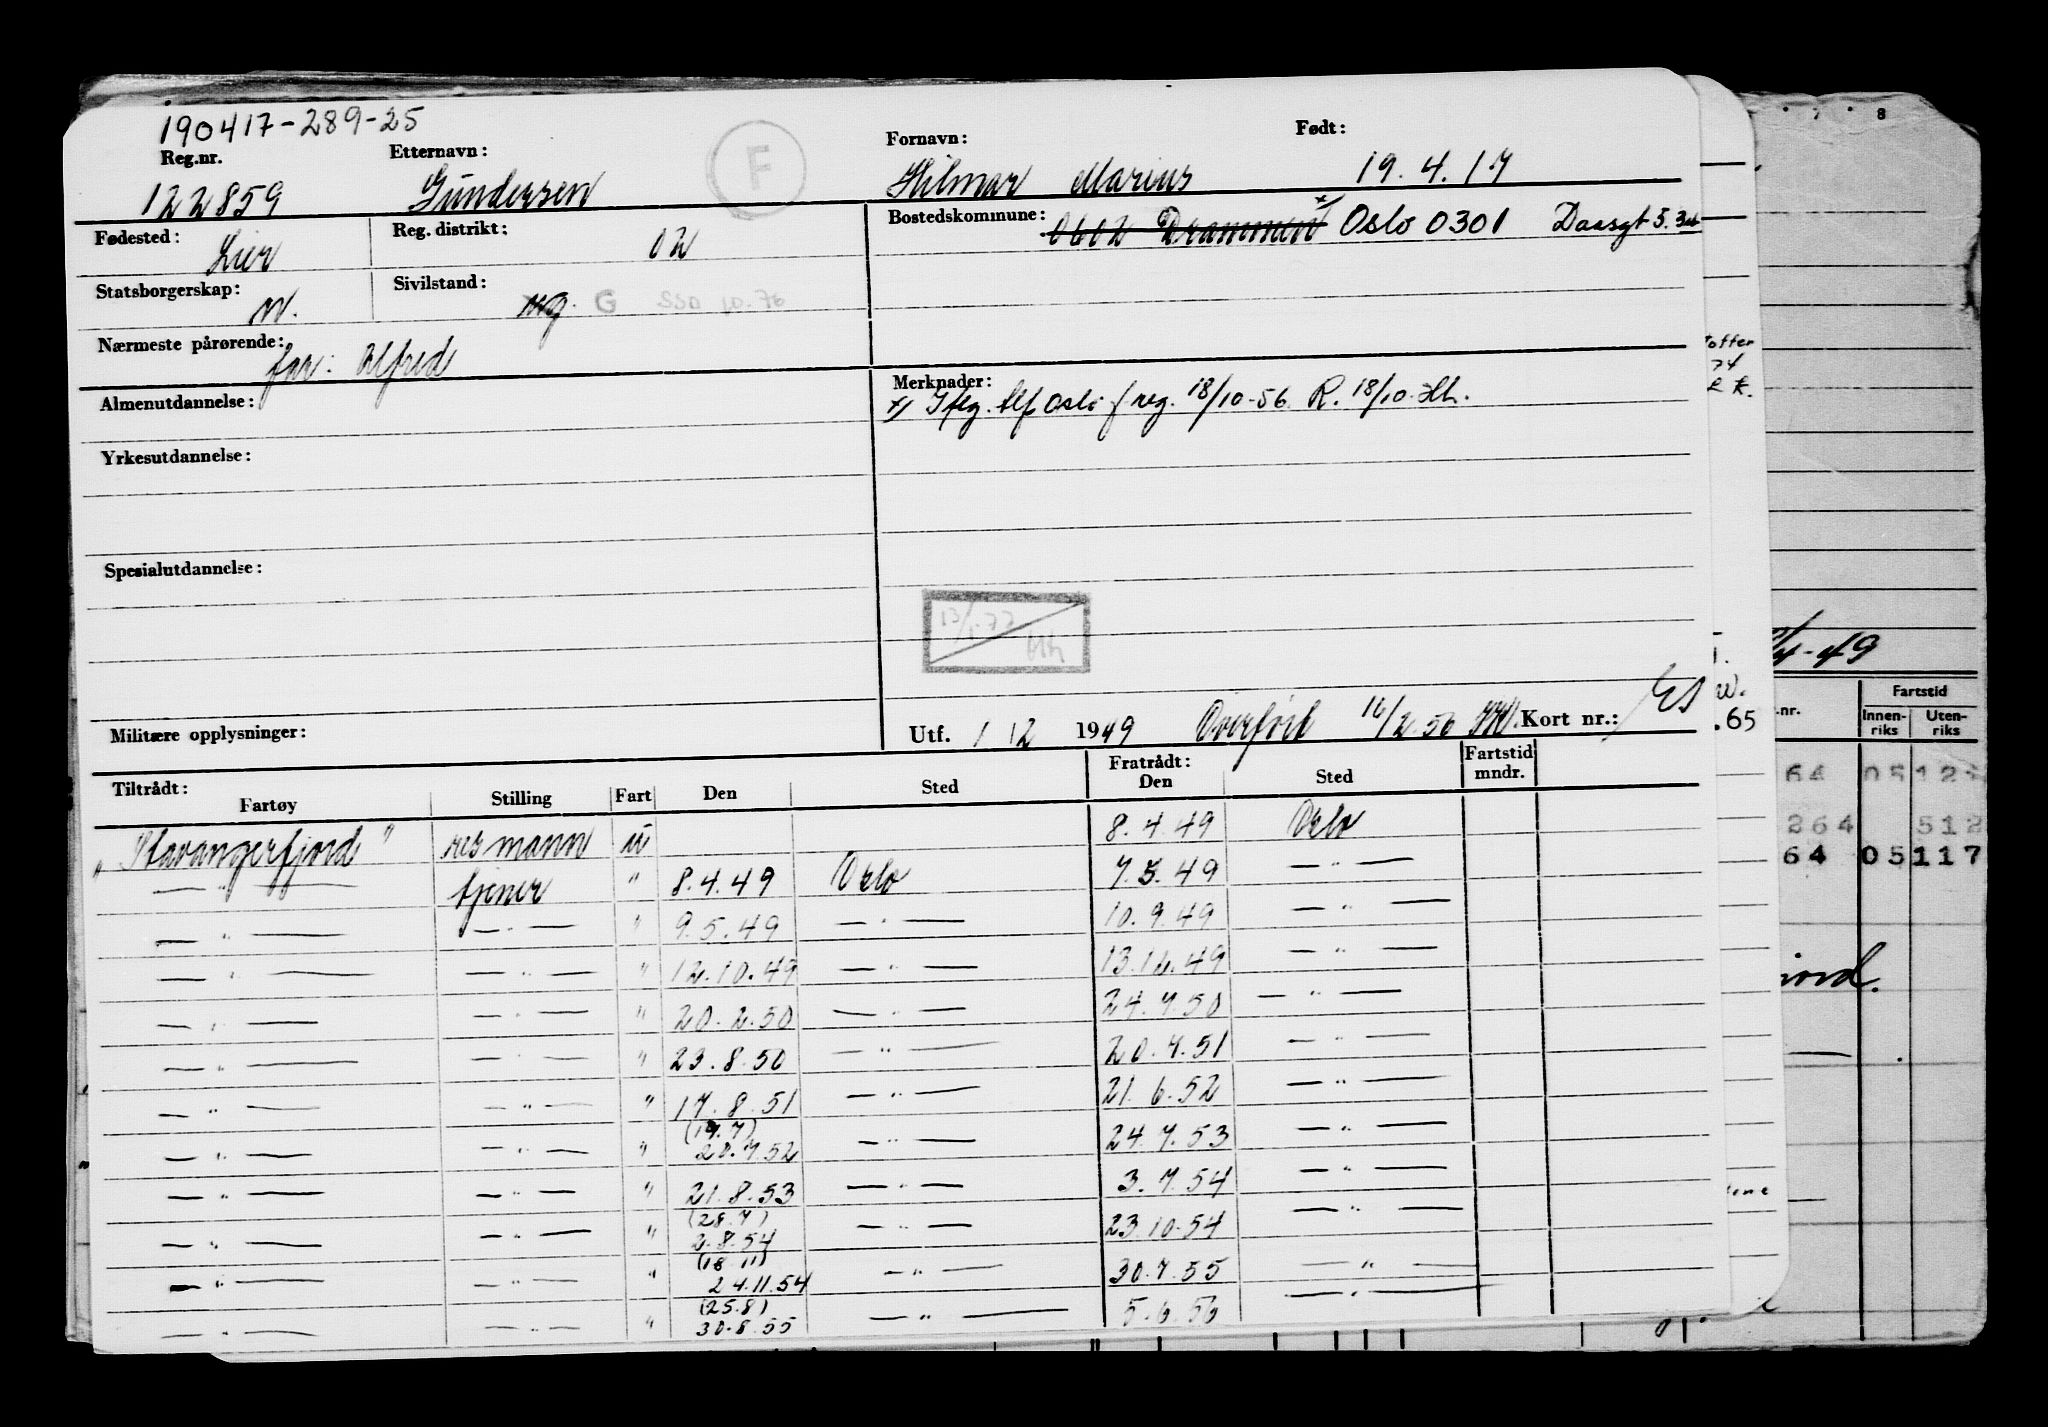 190417-289-25
Reg.nr. Etternavn: F Fornavn: Født:
122859 Gundersen Hilmar Marius 19.4.17
Fødested: Lier Reg. distrikt: 02 Bostedskommune: 0602 Drammen x Oslo 0301 Daasgt 5.
Statsborgerskap: n. Sivilstand: ug. G SSD 10.76
Nærmeste pårørende: far: Alfred
Almenutdannelse: Merknader:
x) Iflg. tlf Oslo s.reg. 18/10-56 R. 18/10 Hh.
Yrkesutdannelse:
Spesialutdannelse:
13/1-77 Hh
Militære opplysninger: Utf. 1 12 1949 Overført 16/2.56 Kort nr.:
Tiltrådt: Fartøy Stilling Fart Den Sted Fratrådt: Den Sted Fartstid mndr.
„Stavangerfjord" mann u 8.4.49 Oslo
— " — tjener " 8.4.49 Oslo 7.5.49 — " —
— " — — " — " 9.5.49 — " — 10.9.49 — " —
— " — — " — " 12.10.49 — " — 13.12.49 — " —
— " — — " — " 20.2.50 — " — 24.7.50 — " —
— " — — " — " 23.8.50 — " — 20.7.51 — " —
— " — — " — " 17.8.51 — " — 21.6.52 — " —
(19.7)
— " — — " — " 20.7.52 — " — 24.7.53 — " —
— " — — " — " 21.8.53 — " — 3.7.54 — " —
(28.7)
— " — — " — " 2.8.54 — " — 23.10.54 — " —
(18.11)
— " — — " — " 24.11.54 — " — 30.7.55 — " —
(25.8)
— " — — " — " 30.8.55 — " — 5.6.56 — " —
7 8
74
k.
4-49
w.
.65
nr. Fartstid
Innen-riks Uten-riks
64 05 12
264 512
64 05 117
jord.